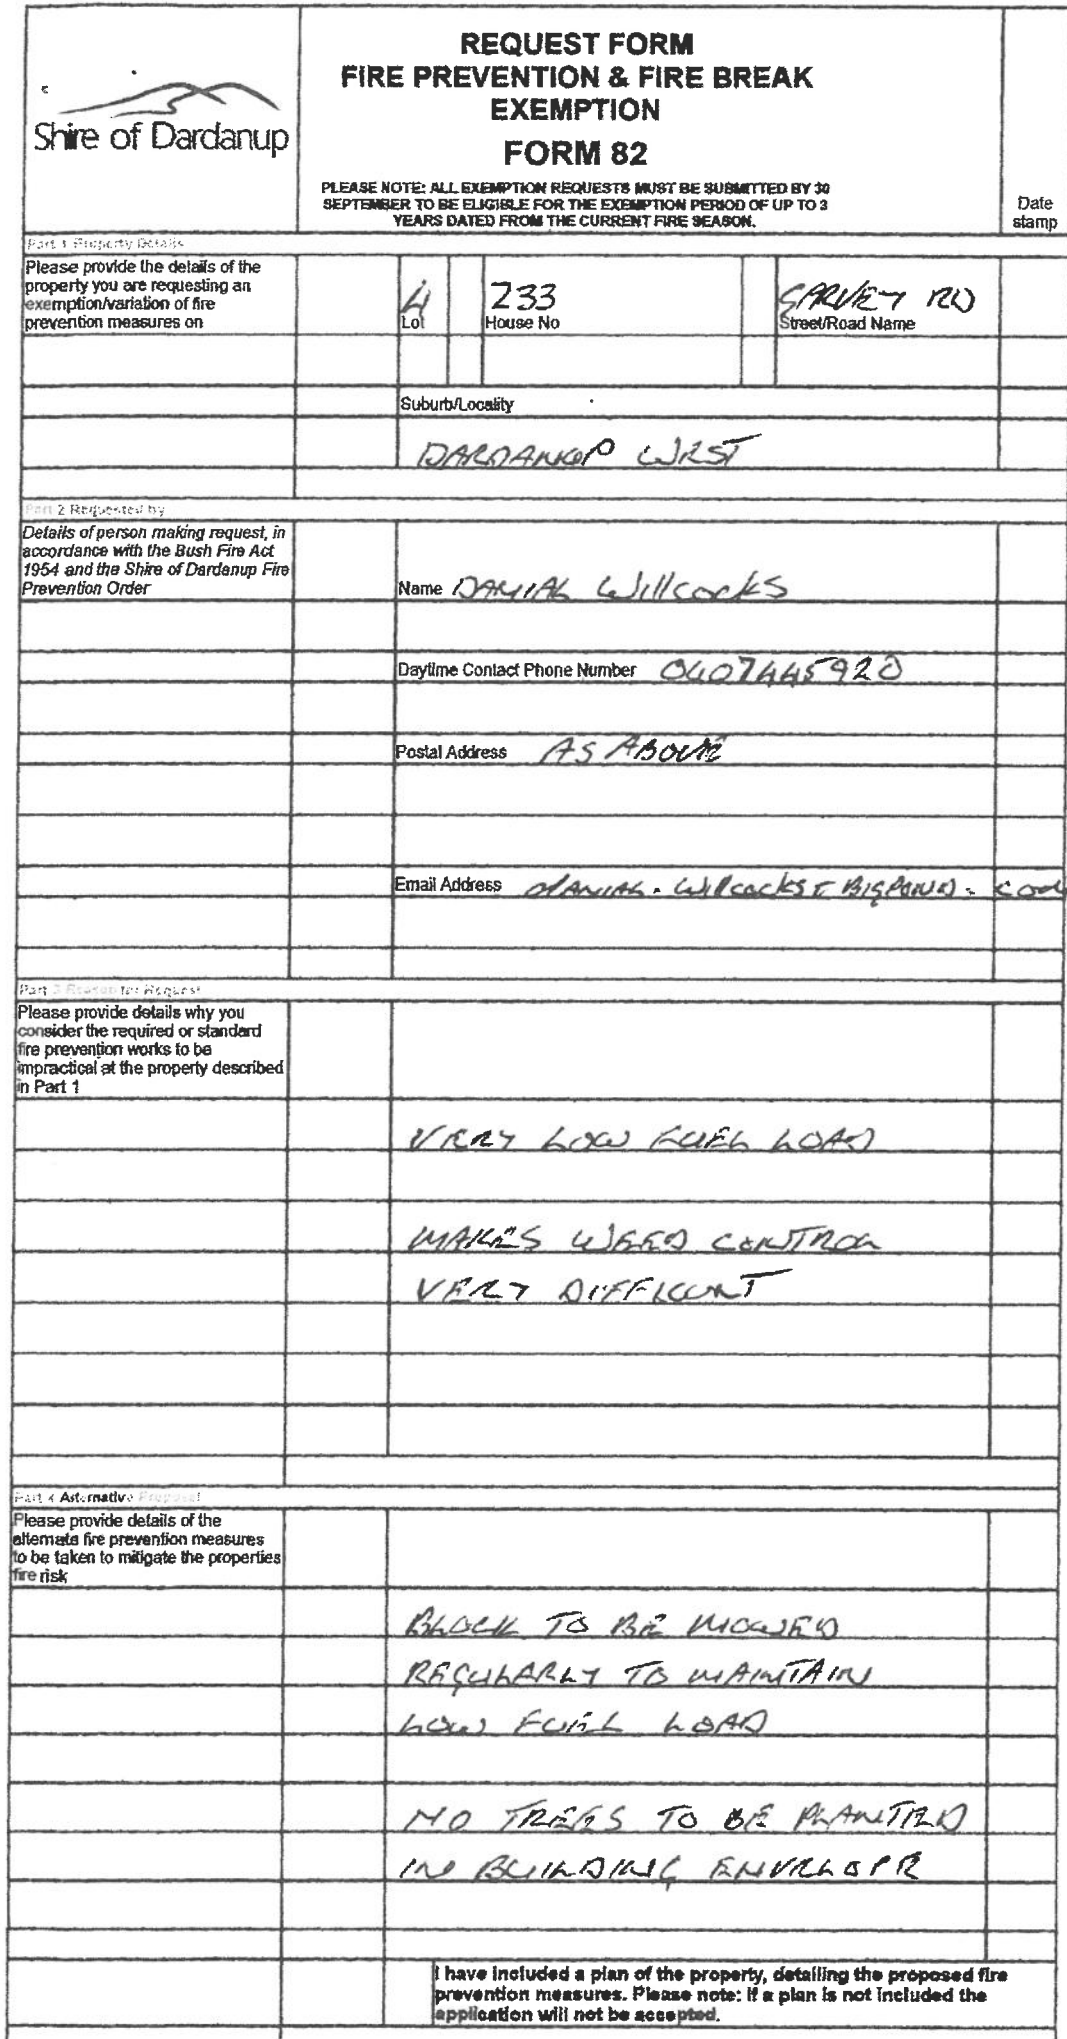 Shire of Dardanup
REQUEST FORM
FIRE PREVENTION & FIRE BREAK
EXEMPTION
FORM 82
PLEASE NOTE: ALL EXEMPTION REQUESTS MUST BE SUBMITTED BY 30
SEPTEMBER TO BE ELIGIBLE FOR THE EXEMPTION PERIOD OF UP TO 3
YEARS DATED FROM THE CURRENT FIRE SEASON.
Date
stamp
Part 1 Property Details
Please provide the details of the
property you are requesting an
exemption/variation of fire
prevention measures on
4
Lot
233
House No
GARVEY RD
Street/Road Name
Suburb/Locality
DARDANUP WEST
Part 2 Requested by
Details of person making request, in
accordance with the Bush Fire Act
1954 and the Shire of Dardanup Fire
Prevention Order
Name DANIAL Willcocks
Daytime Contact Phone Number 0407445920
Postal Address AS ABOVE
Email Address DANIAL. Willcocks@ BIGPOND. com
Part 3 Reason for Request
Please provide details why you
consider the required or standard
fire prevention works to be
impractical at the property described
in Part 1
VERY LOW FUEL LOAD
MAKES WEED CONTROL
VERY DIFFICULT
Part 4 Alternative Proposal
Please provide details of the
alternate fire prevention measures
to be taken to mitigate the properties
fire risk
BLOCK TO BE MOWED
REGULARLY TO MAINTAIN
LOW FUEL LOAD
NO TREES TO BE PLANTED
IN BUILDING ENVELOPE
I have included a plan of the property, detailing the proposed fire
prevention measures. Please note: if a plan is not included the
application will not be accepted.